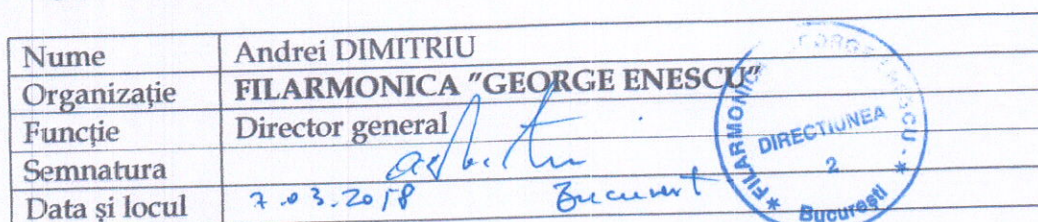 Nume Andrei DIMITRIU
Organizație FILARMONICA "GEORGE ENESCU"
Funcție Director general
Semnatura
Data și locul 7.03.2018 București
FILARMONICA GEORGE ENESCU
DIRECȚIUNEA
2
București